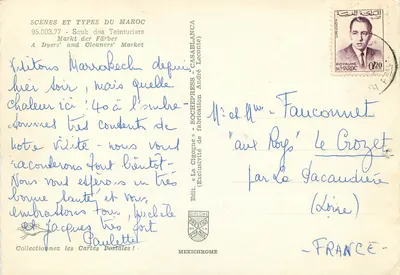 SCENES ET TYPES DU MAROC
95.003.77 - Souk des Teinturiers
Markt der Färber
A Dyers' and Cleaners' Market
Visitons Marrakech depuis
hier soir, mais quelle
chaleur ici! 40 à l'ombre
sommes très contents de
notre visite - nous vous
raconterons tout bientôt -
Nous vous espérons en très
bonne santé et vous
embrassons tous, Michèle
et Jacques très fort
Paulette
Collectionnez les Cartes Postales!
Edit. « La Cigogne » - ROCHEPRESS - CASABLANCA
(Exclusivité de fabrication André Leconte)
MEXICHROME
ROYAUME DU MAROC
0,20
Mr et Mme Fauconnet
"aux Roys" Le Crozet
par La Pacaudière
(Loire)
- FRANCE -